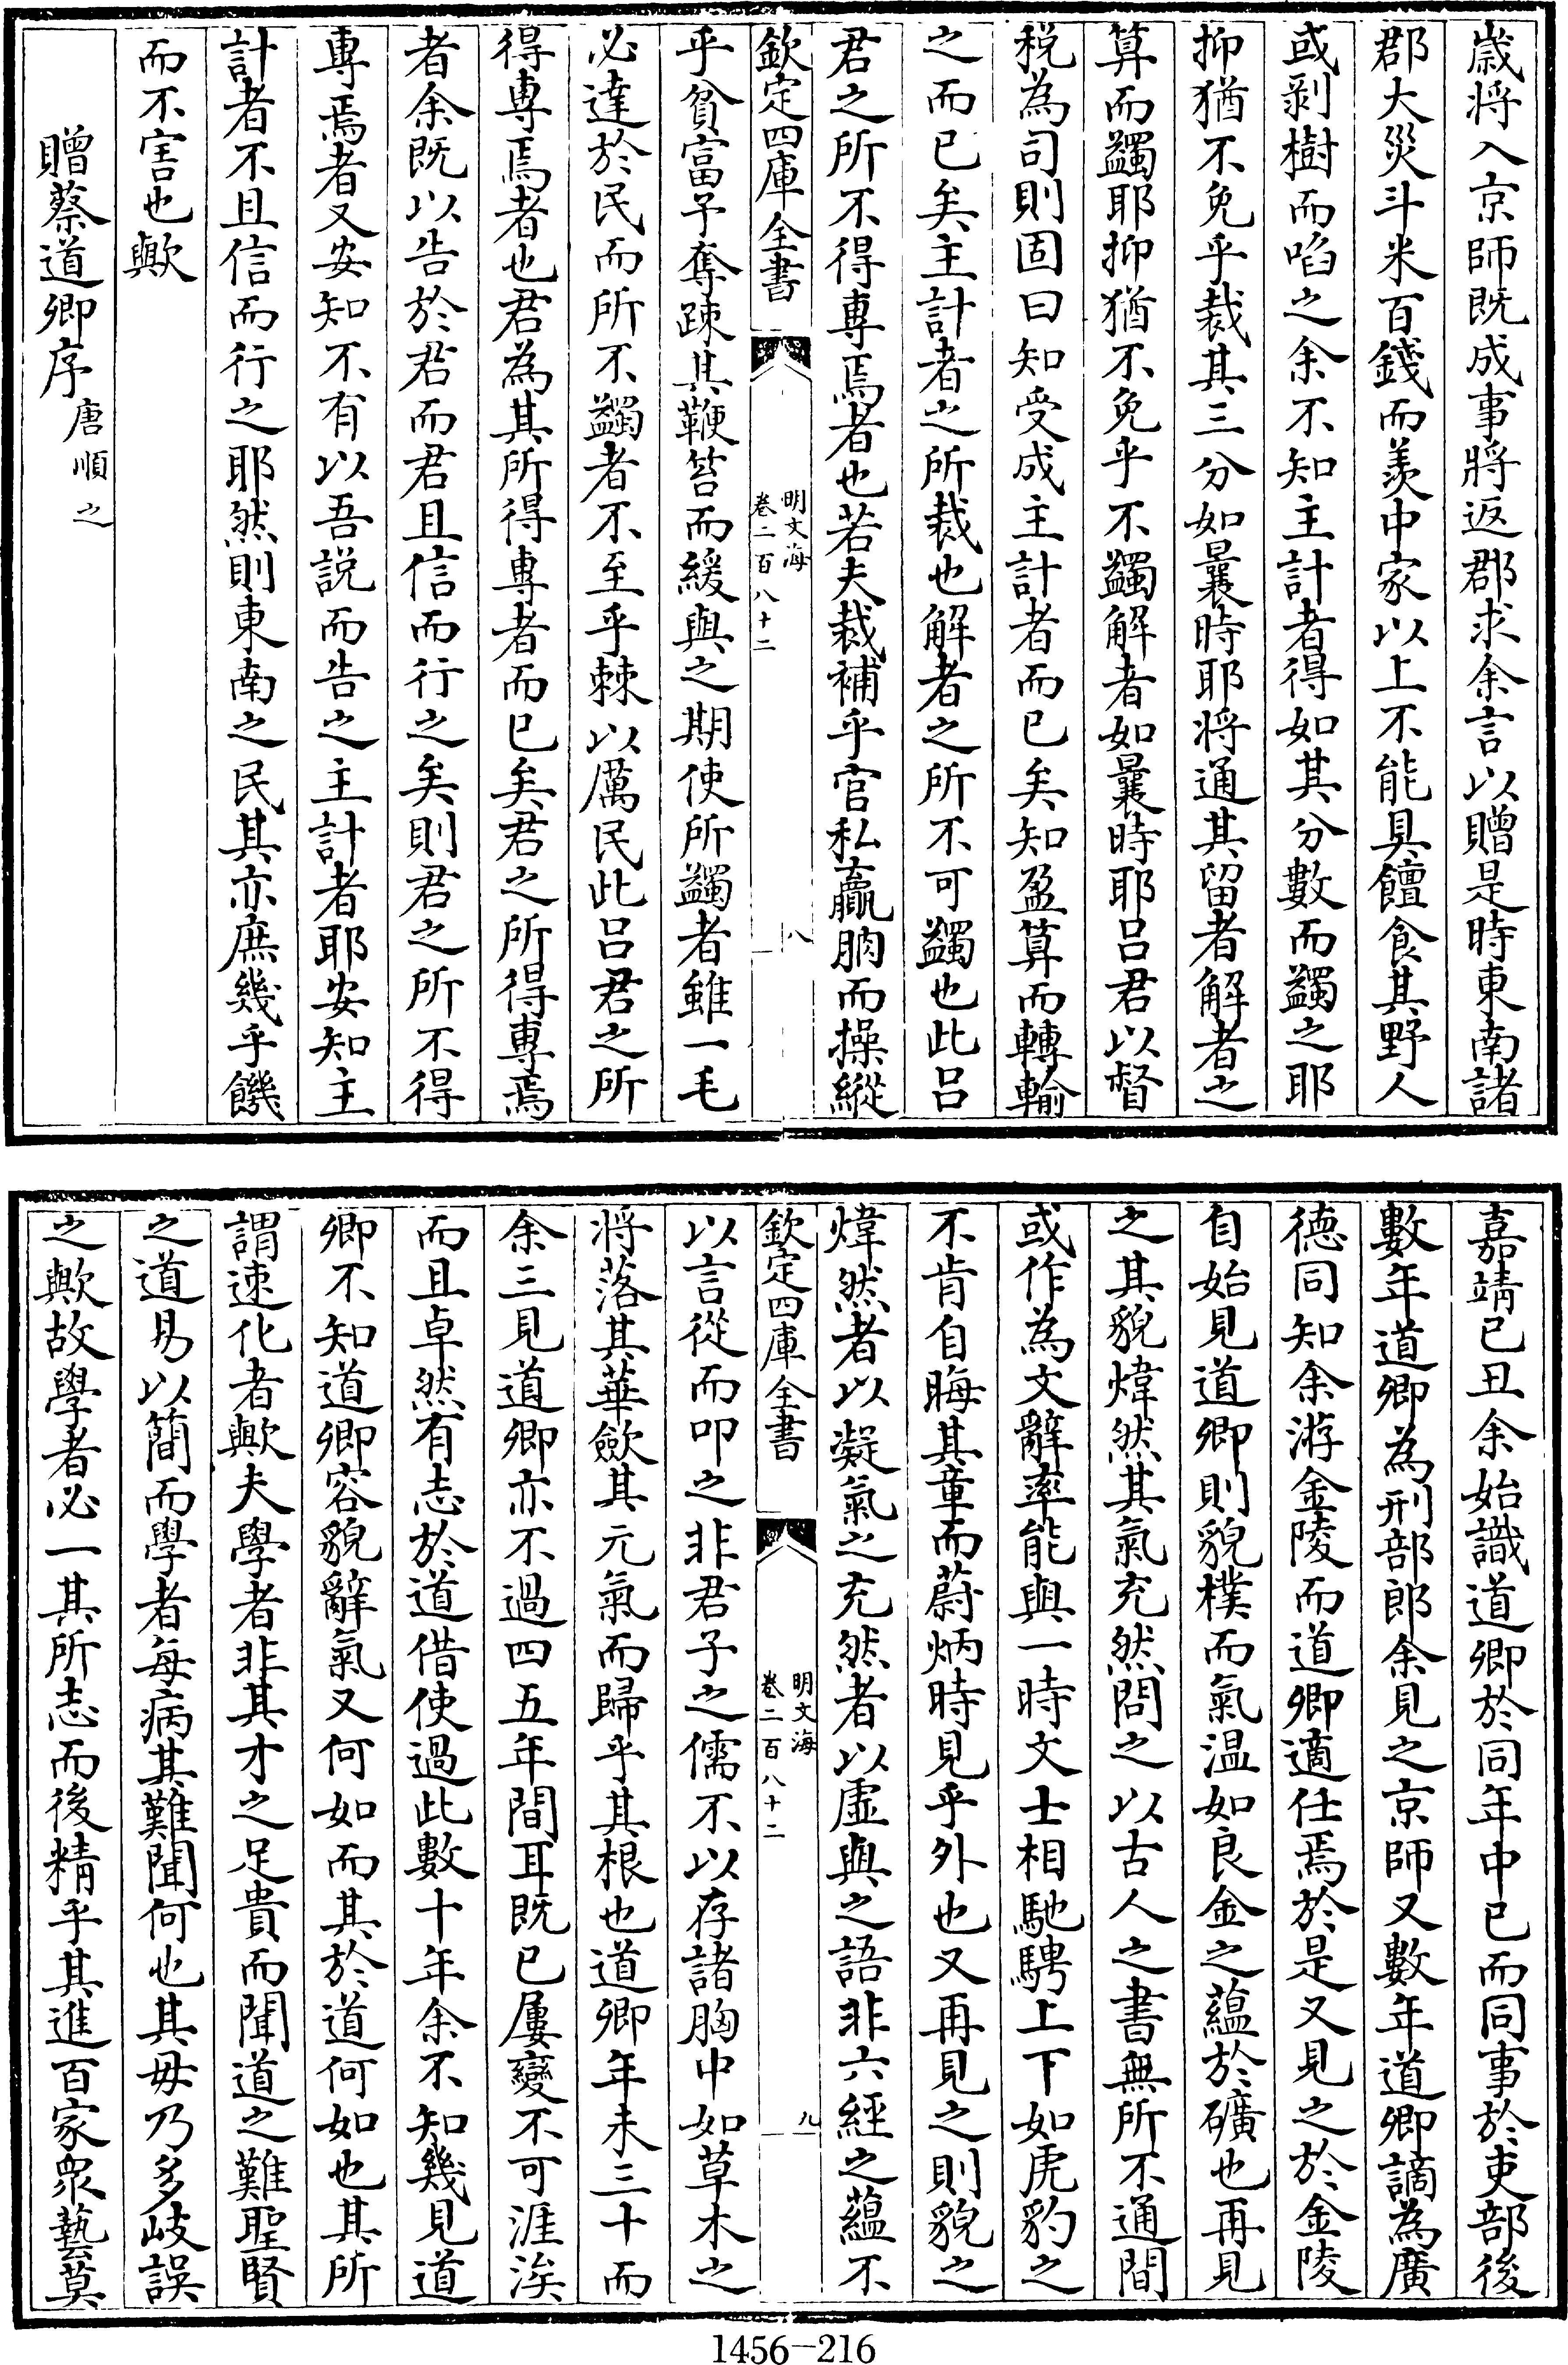 歲將入京師既成事將返郡求余言以贈是時東南諸
郡大災斗米百錢而羨中家以上不能具饘食其野人
或剥樹而啗之余不知主計者得如其分數而蠲之耶
抑猶不免乎裁其三分如曩時耶將通其留者解者之
算而蠲耶抑猶不免乎不蠲解者如曩時耶吕君以督
税為司則固曰知受成主計者而已矣知盈算而轉輸
之而已矣主計者之所裁也解者之所不可蠲也此吕
君之所不得專焉者也若夫裁補乎官私贏朒而操縱
欽定四庫全書
明文海
卷二百八十二
八
乎貧富予奪疎其鞭笞而緩與之期使所蠲者雖一毛
必達於民而所不蠲者不至乎棘以厲民此吕君之所
得專焉者也君為其所得專者而已矣君之所得專焉
者余既以告於君而君且信而行之矣則君之所不得
專焉者又安知不有以吾説而告之主計者耶安知主
計者不且信而行之耶然則東南之民其亦庶幾乎饑
而不害也歟
贈蔡道卿序 唐順之
嘉靖己丑余始識道卿於同年中已而同事於吏部後
數年道卿為刑部郎余見之京師又數年道卿謫為廣
德同知余游金陵而道卿適任焉於是又見之於金陵
自始見道卿則貌樸而氣温如良金之蘊於礦也再見
之其貌煒然其氣充然問之以古人之書無所不通間
或作為文辭率能與一時文士相馳騁上下如虎豹之
不肯自晦其章而蔚炳時見乎外也又再見之則貌之
煒然者以凝氣之充然者以虚與之語非六經之蘊不
欽定四庫全書
明文海
卷二百八十二
九
以言從而叩之非君子之儒不以存諸胸中如草木之
將落其華歛其元氣而歸乎其根也道卿年未三十而
余三見道卿亦不過四五年間耳既已屢變不可涯涘
而且卓然有志於道借使過此數十年余不知幾見道
卿不知道卿容貌辭氣又何如而其於道何如也其所
謂速化者歟夫學者非其才之足貴而聞道之難聖賢
之道易以簡而學者每病其難聞何也其毋乃多歧誤
之歟故學者必一其所志而後精乎其進百家衆藝莫
1456—216